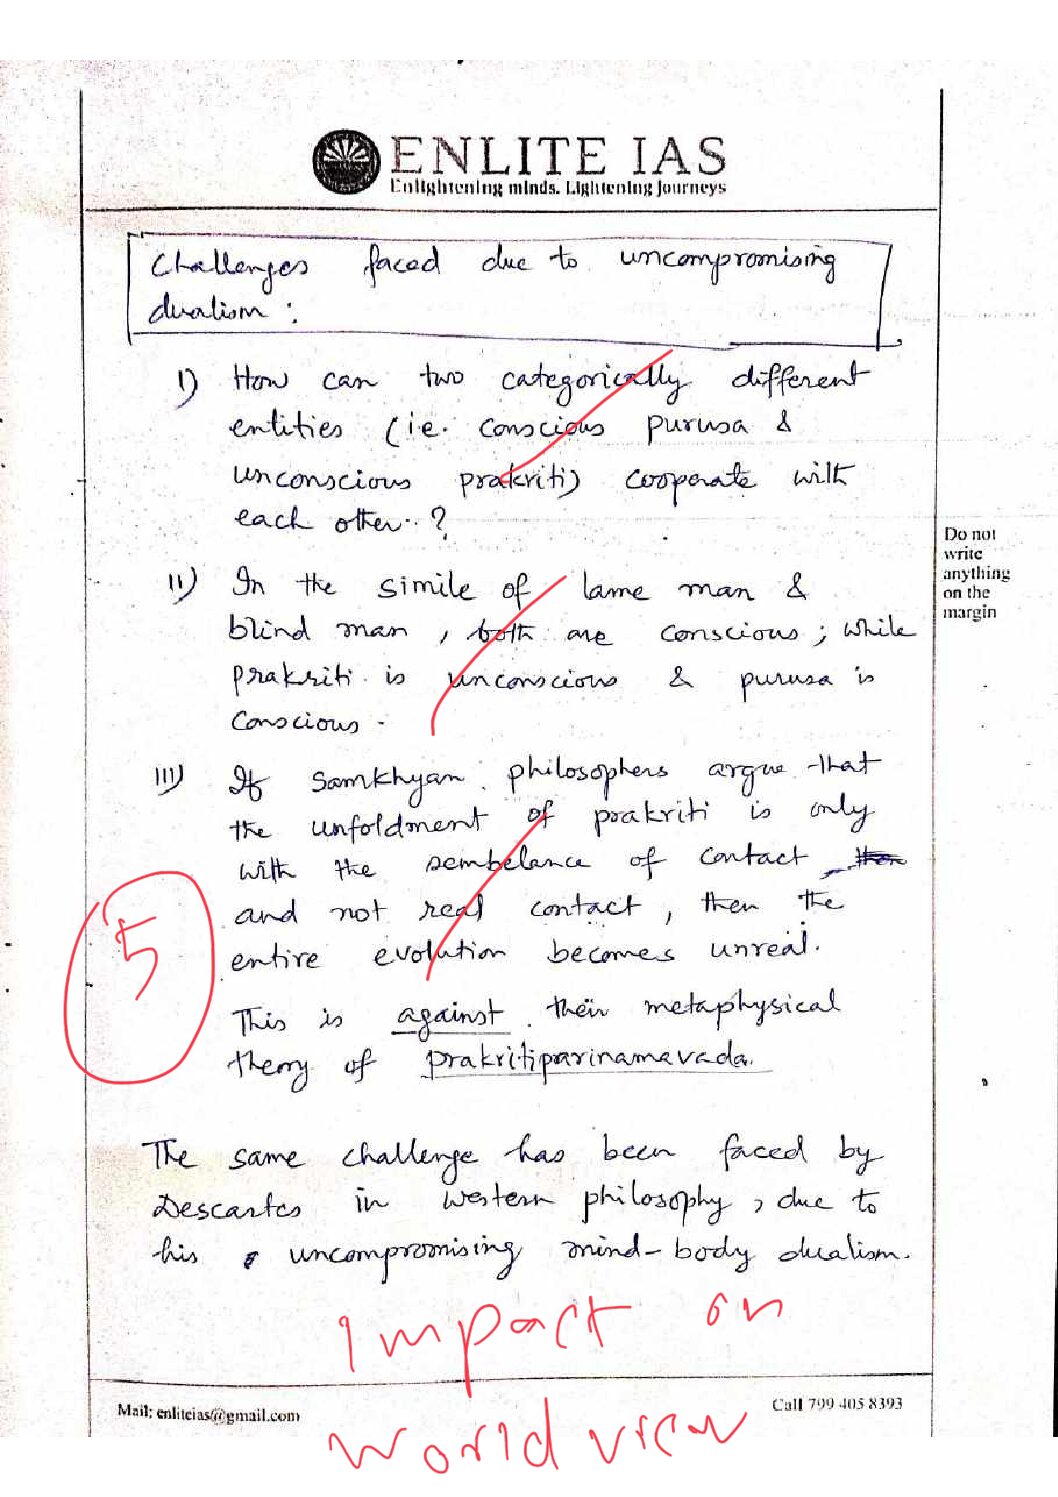 ENLITE IAS
Enlightening minds. Lightening Journeys
Challenges faced due to uncompromising
dualism :
I) How can two categorically different
entities (i.e. conscious purusa &
unconscious prakriti) cooperate with
each other..?
II) In the simile of lame man &
blind man, both are conscious; while
prakriti is unconscious & purusa is
conscious.
III) If Samkhyan philosophers argue that
the unfoldment of prakriti is only
with the sembelance of contact
and not real contact, then the
entire evolution becomes unreal.
This is against their metaphysical
theory of prakritiparinamavada.
5
The same challenge has been faced by
Descartes in western philosophy, due to
his uncompromising mind-body dualism.
Impact on
World view
Do not
write
anything
on the
margin
Mail: enliteias@gmail.com
Call 799 405 8393